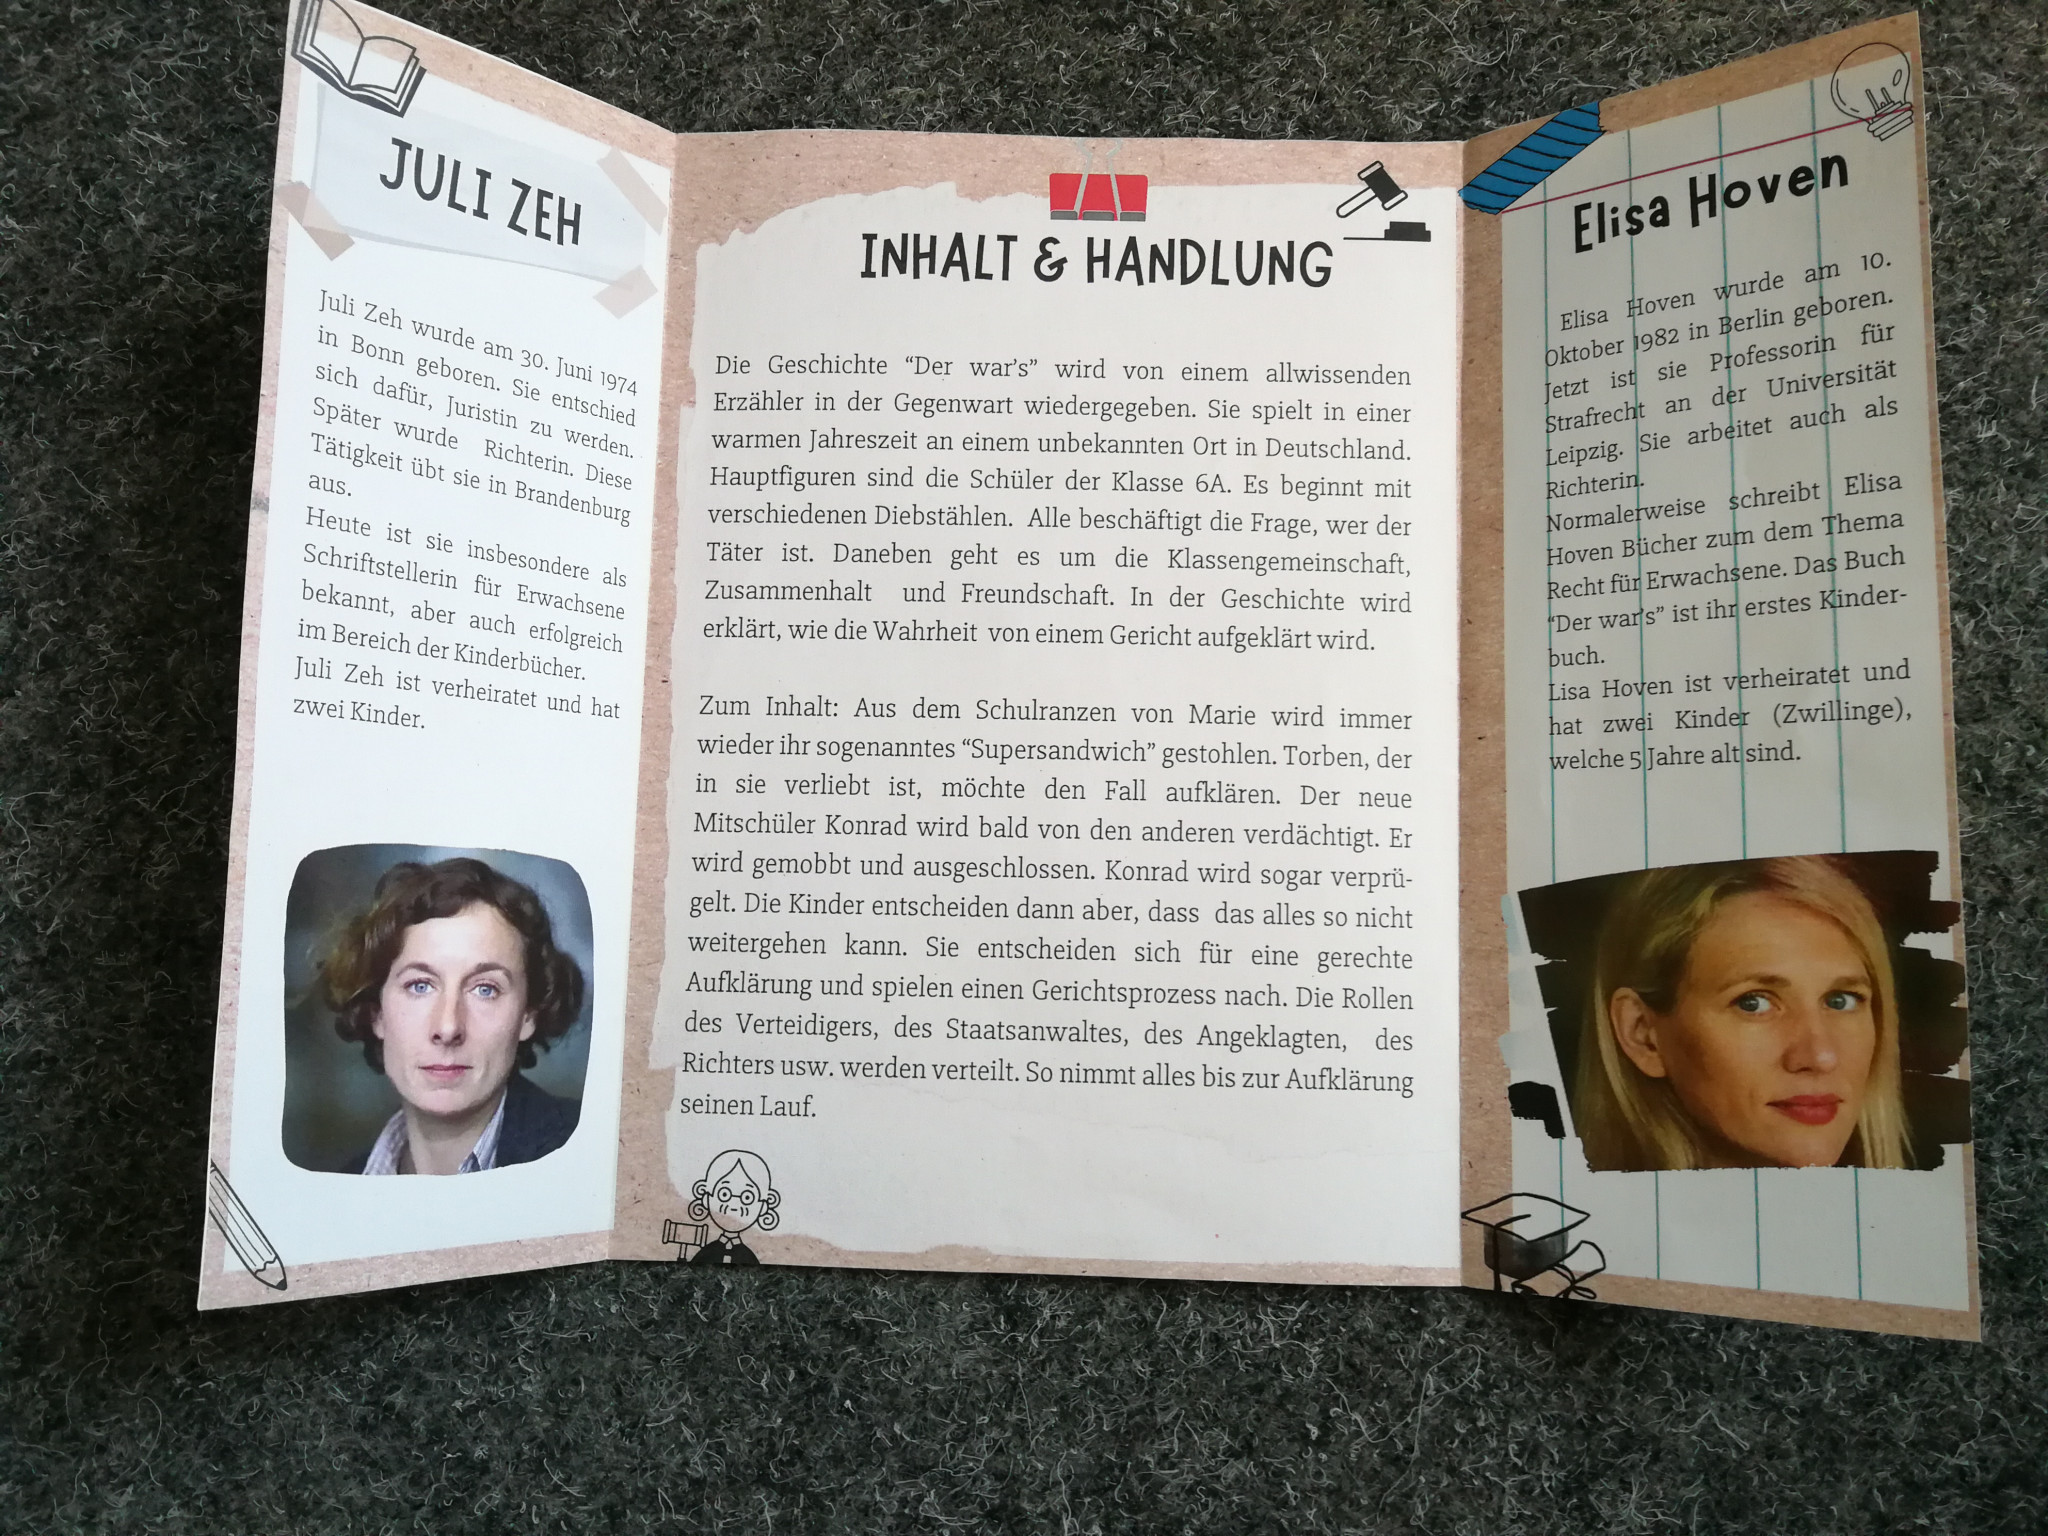 JULI ZEH
Juli Zeh wurde am 30. Juni 1974
in Bonn geboren. Sie entschied
sich dafür, Juristin zu werden.
Später wurde Richterin. Diese
Tätigkeit übt sie in Brandenburg
aus.
Heute ist sie insbesondere als
Schriftstellerin für Erwachsene
bekannt, aber auch erfolgreich
im Bereich der Kinderbücher.
Juli Zeh ist verheiratet und hat
zwei Kinder.
INHALT & HANDLUNG
Die Geschichte “Der war’s” wird von einem allwissenden
Erzähler in der Gegenwart wiedergegeben. Sie spielt in einer
warmen Jahreszeit an einem unbekannten Ort in Deutschland.
Hauptfiguren sind die Schüler der Klasse 6A. Es beginnt mit
verschiedenen Diebstählen. Alle beschäftigt die Frage, wer der
Täter ist. Daneben geht es um die Klassengemeinschaft,
Zusammenhalt und Freundschaft. In der Geschichte wird
erklärt, wie die Wahrheit von einem Gericht aufgeklärt wird.
Zum Inhalt: Aus dem Schulranzen von Marie wird immer
wieder ihr sogenanntes “Supersandwich” gestohlen. Torben, der
in sie verliebt ist, möchte den Fall aufklären. Der neue
Mitschüler Konrad wird bald von den anderen verdächtigt. Er
wird gemobbt und ausgeschlossen. Konrad wird sogar verprü-
gelt. Die Kinder entscheiden dann aber, dass das alles so nicht
weitergehen kann. Sie entscheiden sich für eine gerechte
Aufklärung und spielen einen Gerichtsprozess nach. Die Rollen
des Verteidigers, des Staatsanwaltes, des Angeklagten, des
Richters usw. werden verteilt. So nimmt alles bis zur Aufklärung
seinen Lauf.
Elisa Hoven
Elisa Hoven wurde am 10.
Oktober 1982 in Berlin geboren.
Jetzt ist sie Professorin für
Strafrecht an der Universität
Leipzig. Sie arbeitet auch als
Richterin.
Normalerweise schreibt Elisa
Hoven Bücher zum dem Thema
Recht für Erwachsene. Das Buch
“Der war’s” ist ihr erstes Kinder-
buch.
Lisa Hoven ist verheiratet und
hat zwei Kinder (Zwillinge),
welche 5 Jahre alt sind.